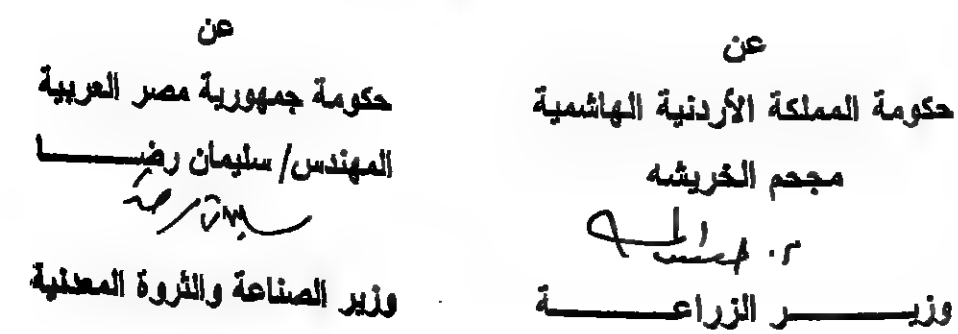 عن
حكومة المملكة الأردنية الهاشمية
مجحم الخريشه
وزيـــــــر الزراعـــــــة
عن
حكومة جمهورية مصر العربية
المهندس/ سليمان رضـــــا
وزير الصناعة والثروة المعدنية